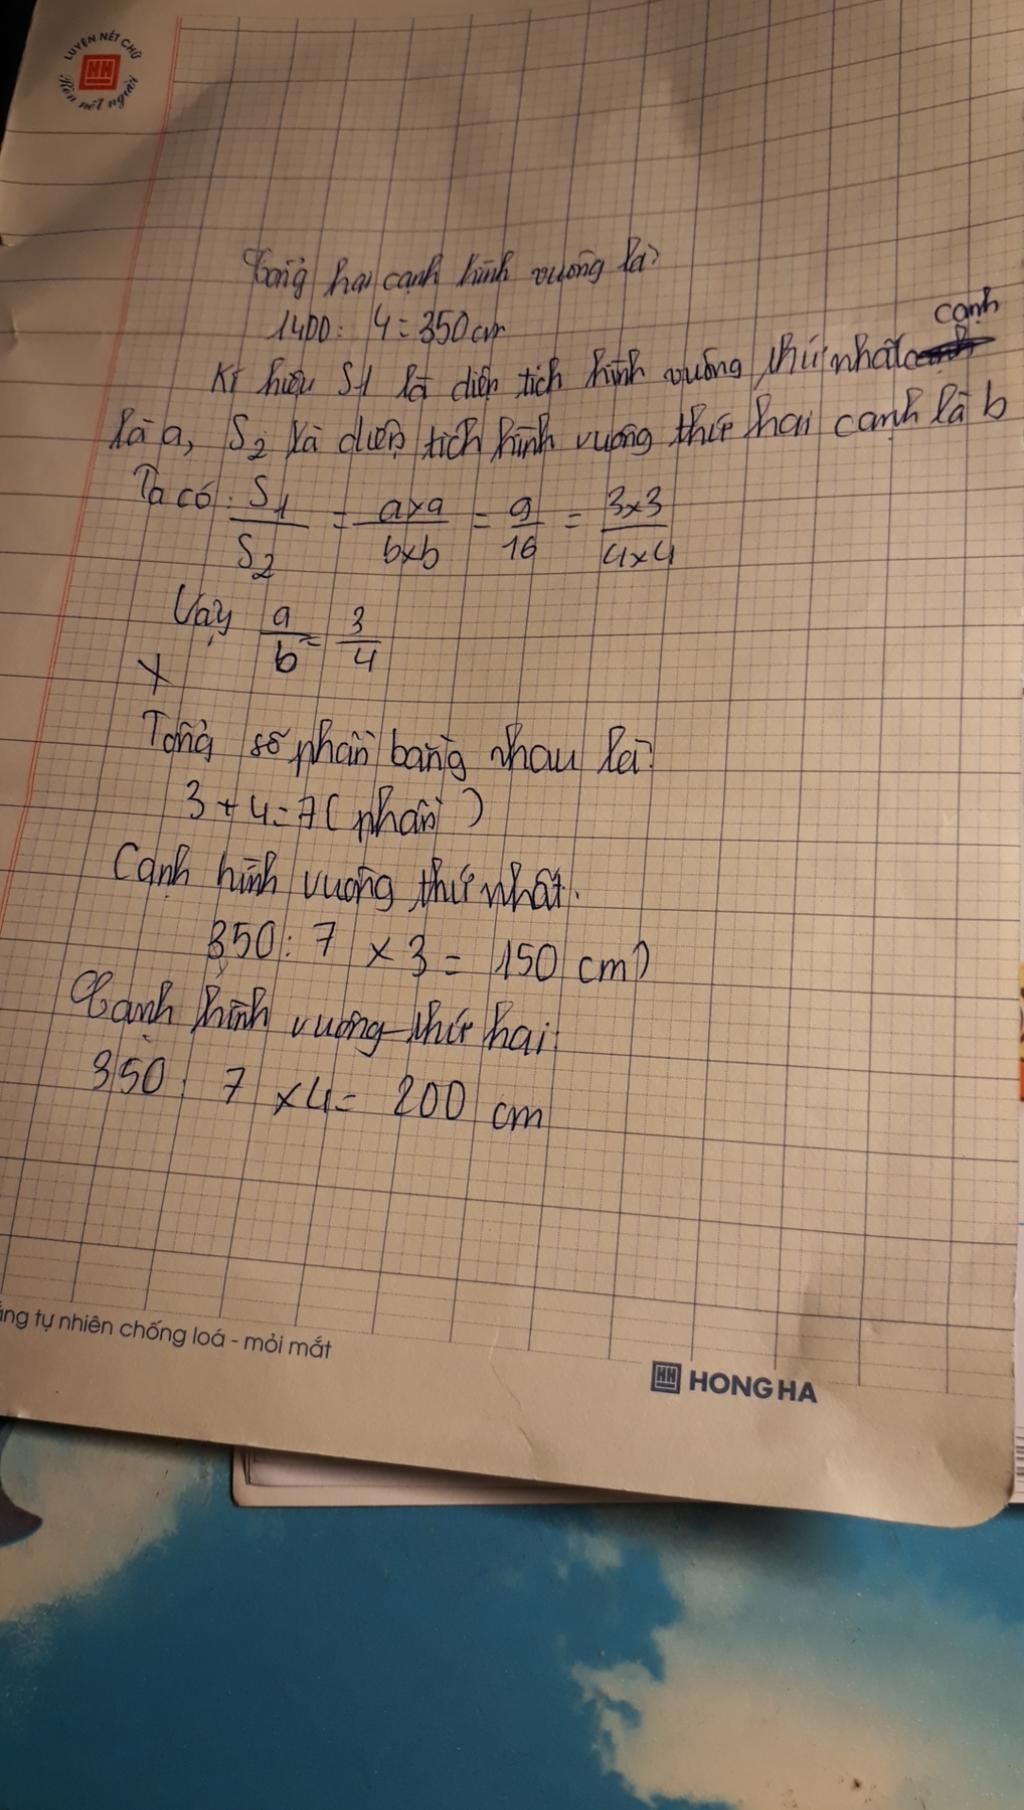 LUYỆN NÉT CHỮ
HH
Rèn nết người
Tổng hai cạnh hình vuông là:
1400 : 4 = 350 cm
Kí hiệu S1 là diện tích hình vuông thứ nhất cạnh
là a, S2 là diện tích hình vuông thứ hai cạnh là b
Ta có: S1/S2 = a×a/b×b = 9/16 = 3×3/4×4
Vậy a/b = 3/4
Tổng số phần bằng nhau là:
3 + 4 = 7 ( phần )
Cạnh hình vuông thứ nhất.
350 : 7 × 3 = 150 cm)
Cạnh hình vuông thứ hai:
350 : 7 × 4 = 200 cm
tự nhiên chống loá - mỏi mắt
HH HONG HA